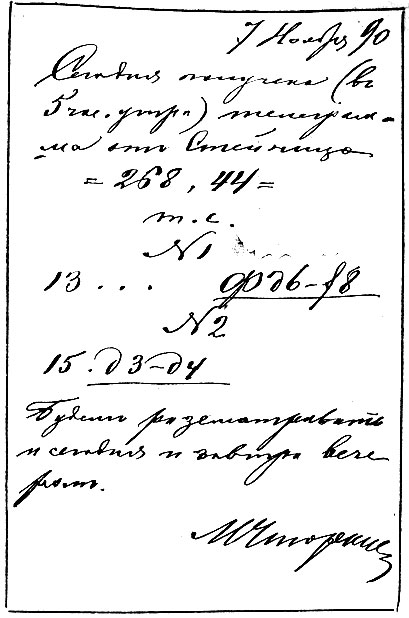 7 Ноября 90
Сегодня получена (въ
5 час. утра) телеграм-
ма отъ Стейница
= 268, 44 =
т. е.
№ 1
13 . . . Фd6–f8
№ 2
15. d3–d4
Будемъ разсматривать
и сегодня и завтра вече
ромъ.
МЧигоринъ